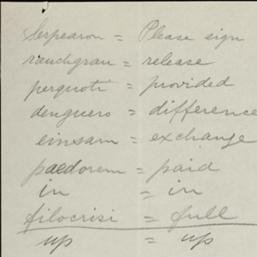 serpearon = Please sign
rauchgrau = release
perquoti = provided
denguero = difference
einsam = exchange
paedorem = paid
in = in
filocrisi = full
up = up